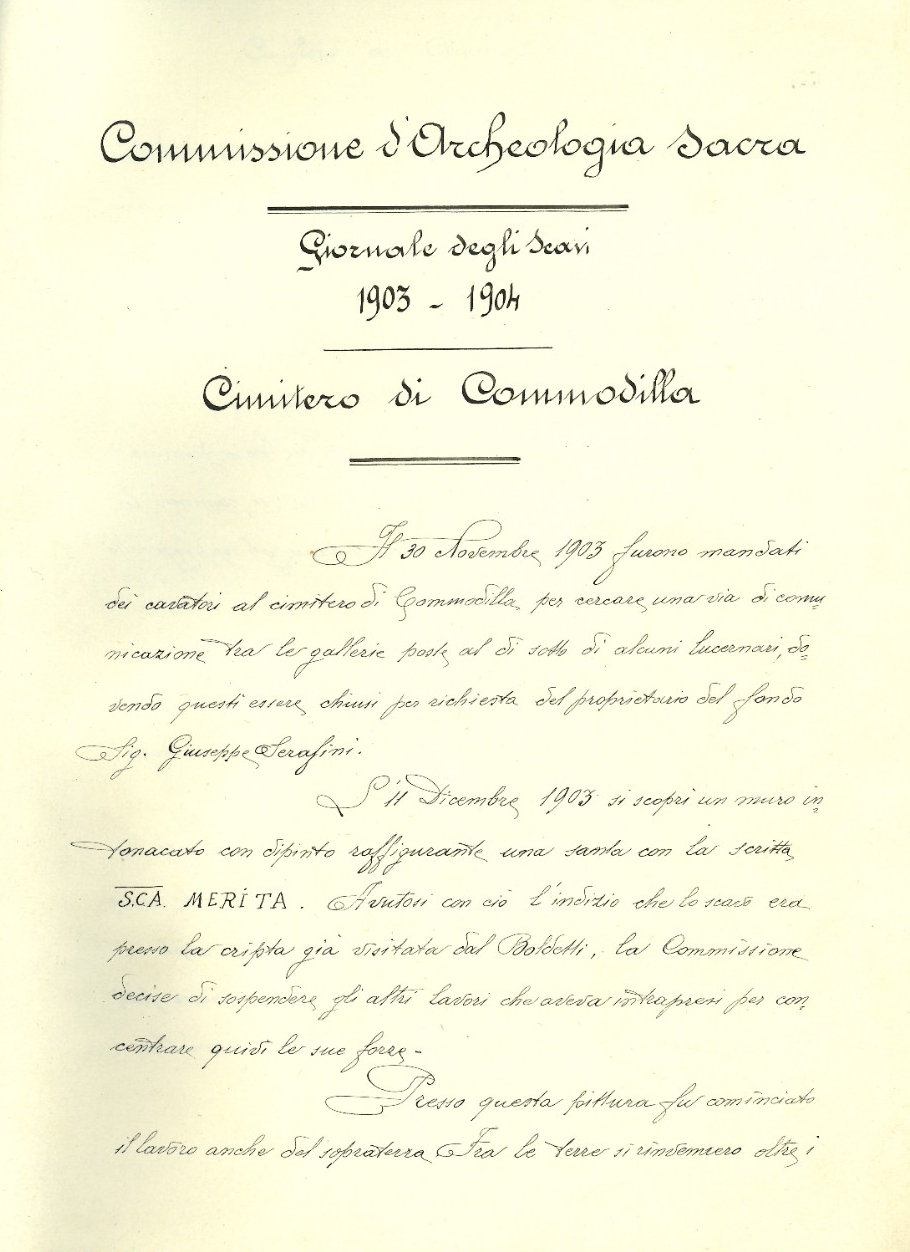 Commissione d'Archeologia Sacra
Giornale degli Scavi
1903 - 1904
Cimitero di Commodilla
Il 30 Novembre 1903 furono mandati
dei cavatori al cimitero di Commodilla per cercare una via di comu=
nicazione tra le gallerie poste al di sotto di alcuni lucernari, do=
vendo questi essere chiusi per richiesta del proprietario del fondo
Sig. Giuseppe Serafini.
L'11 Dicembre 1903 si scoprì un muro in=
tonacato con dipinto raffigurante una santa con la scritta
S.CA. MERITA. Avutosi con ciò l'indizio che lo scavo era
presso la cripta già visitata dal Boldetti, la Commissione
decise di sospendere gli altri lavori che aveva intrapresi per con=
centrare quivi le sue forze -
Presso questa pittura fu cominciato
il lavoro anche del sopraterra. Fra le terre si rinvennero oltre i